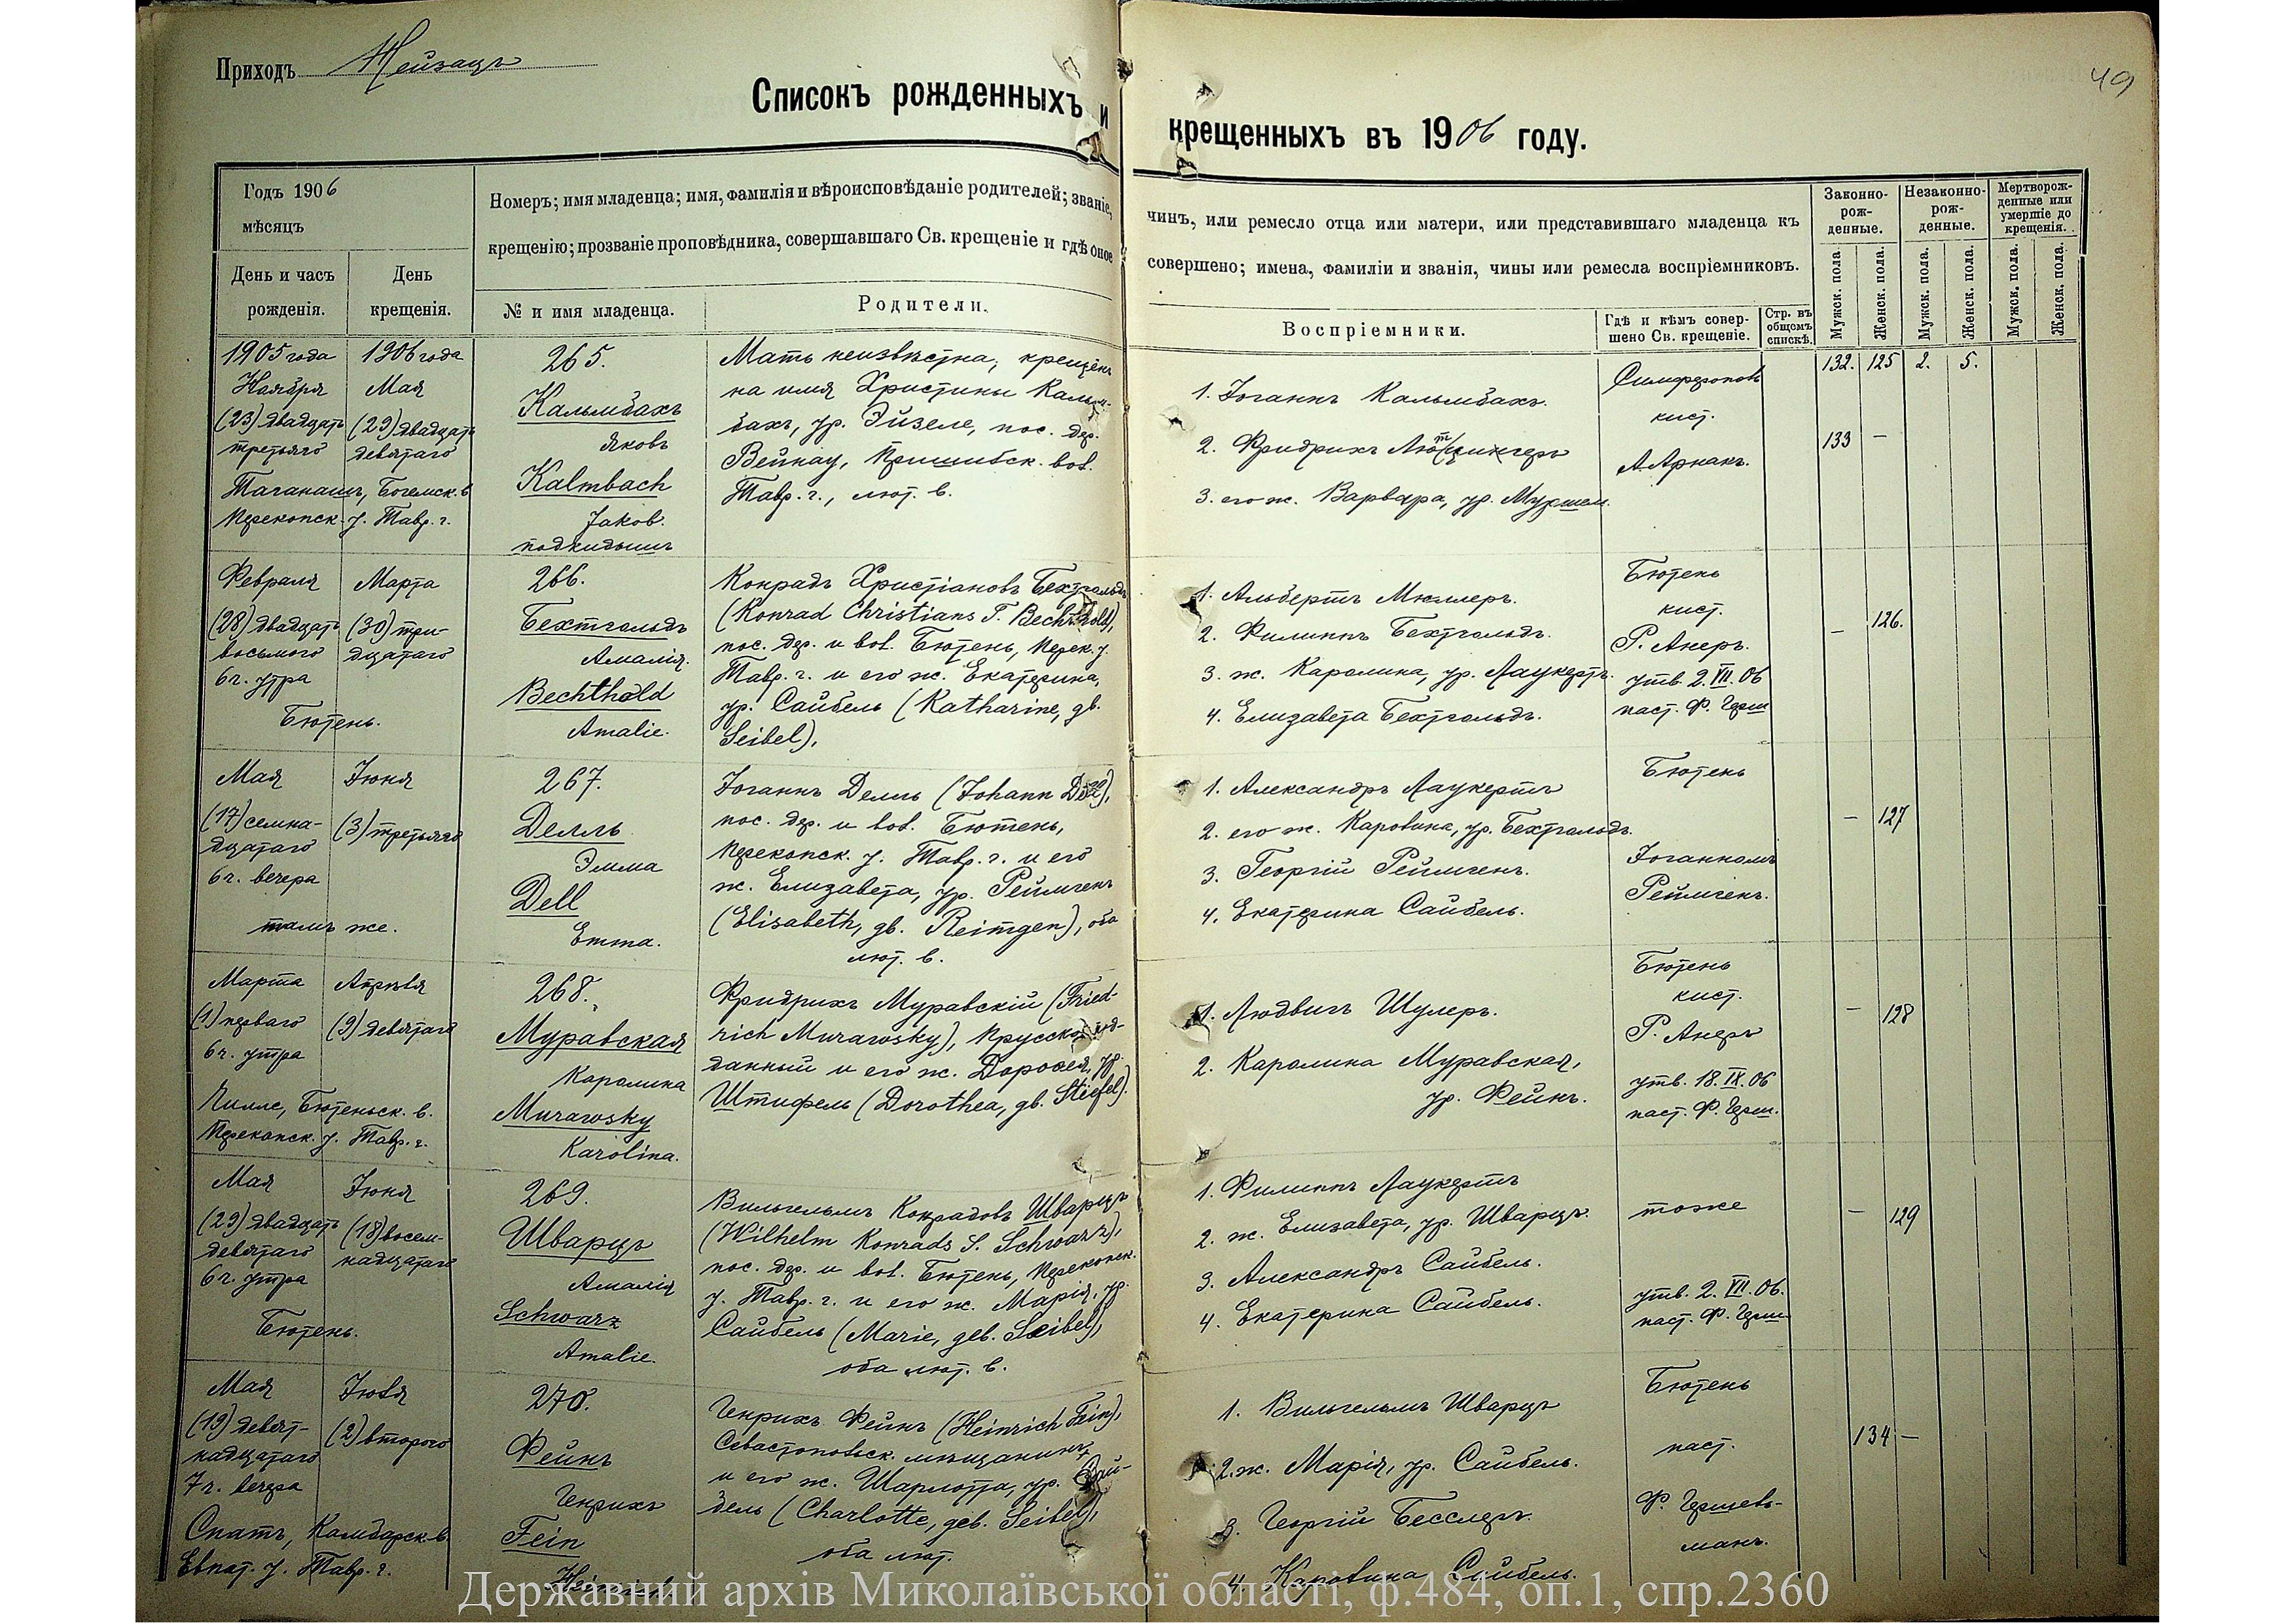 Приходъ Нейзацъ
49
Списокъ рожденныхъ и крещенныхъ въ 1906 году.
Годъ 1906
мѣсяцъ
День и часъ рожденія.
День крещенія.
Номеръ; имя младенца; имя, фамилія и вѣроисповѣданіе родителей; званіе, чинъ, или ремесло отца или матери, или представившаго младенца къ
крещенію; прозваніе проповѣдника, совершавшаго Св. крещеніе и гдѣ оное совершено; имена, фамиліи и званія, чины или ремесла воспріемниковъ.
№ и имя младенца.
Родители.
Воспріемники.
Гдѣ и кѣмъ совершено Св. крещеніе.
Стр. въ общемъ спискѣ.
Законнорожденные.
Незаконнорожденные.
Мертворожденные или умершіе до крещенія.
Мужск. пола.
Женск. пола.
Мужск. пола.
Женск. пола.
Мужск. пола.
Женск. пола.
1905 года
Ноября
(23) двадцать
третьяго
1906 года
Мая
(29) двадцать
девятаго
Таганашъ, Богемск. в.
Перекопск. у. Тавр. г.
265.
Кальмбахъ
Яковъ
Kalmbach
Jakob.
подкидышъ
Мать неизвѣстна, крещенъ
на имя Христины Кальм-
бахъ, ур. Эйзеле, пос. дер.
Вейнау, Пришибск. вол.
Тавр. г., лют. в.
1. Іоганнъ Кальмбахъ.
2. Фридрихъ
3. его ж. Варвара, ур.
Симферополь
кист.
А. Арнакъ.
132. 125 2. 5.
133 —
Февраля
(28) двадцать
восьмого
6 ч. утра
Марта
(30) три-
дцатаго
Бютень.
266.
Бехтгольдъ
Амалія.
Bechthold
Amalie.
Конрадъ Христіановъ Бехтгольдъ
(Konrad Christians S. Bechthold),
пос. дер. и вол. Бютень, Перек. у.
Тавр. г. и его ж. Екатерина,
ур. Сайбель (Katharine, gb.
Seibel),
1. Альбертъ Мюллеръ.
2. Филиппъ Бехтгольдъ.
3. ж. Каролина, ур. Лаукертъ.
4. Елизавета Бехтгольдъ.
Бютень
кист.
Р. Анеръ.
утв. 2.VII.06
паст. Ф. Герш
— 126.
Мая
(17) семна-
дцатаго
6 ч. вечера
Іюня
(3) третьяго
тамъ же.
267.
Делль
Эмма
Dell
Emma.
Іоганнъ Делль (Johann Dell),
пос. дер. и вол. Бютень,
Перекопск. у. Тавр. г. и его
ж. Елизавета, ур. Реймгенъ
(Elisabeth, gb. Reimgen), оба
лют. в.
1. Александръ Лаукертъ
2. его ж. Каролина, ур. Бехтгольдъ.
3. Георгій Реймгенъ.
4. Екатерина Сайбель.
Бютень
Іоганномъ
Реймгенъ.
— 127
Марта
(1) перваго
6 ч. утра
Апрѣля
(9) девятаго
Пилле, Бютеньск. в.
Перекопск. у. Тавр. г.
268.
Муравская
Каролина
Murawsky
Karolina.
Фридрихъ Муравскій (Fried-
rich Murawsky), Прусско-под-
данный и его ж. Доротея, ур.
Штифель (Dorothea, gb. Stiefel).
1. Людвигъ Шулеръ.
2. Каролина Муравская,
ур. Фейнъ.
Бютень
кист.
Р. Анеръ
утв. 18.IX.06
паст. Ф. Герш.
— 128
Мая
(29) двадцать
девятаго
6 ч. утра
Іюня
(18) восем-
надцатаго
Бютень.
269.
Шварцъ
Амалія
Schwarz
Amalie.
Вильгельмъ Конрадовъ Шварцъ
(Wilhelm Konrads S. Schwarz),
пос. дер. и вол. Бютень, Перекопск.
у. Тавр. г. и его ж. Марія, ур.
Сайбель (Marie, geb. Seibel),
оба лют. в.
1. Филиппъ Лаукертъ
2. ж. Елизавета, ур. Шварцъ.
3. Александръ Сайбель.
4. Екатерина Сайбель.
тоже
утв. 2.VII.06.
паст. Ф. Герш.
— 129
Мая
(19) девят-
надцатаго
7 ч. вечера
Іюля
(2) второго
Спатъ, Камбарск. в.
Евпат. у. Тавр. г.
270.
Фейнъ
Генрихъ
Fein
Heinrich.
Генрихъ Фейнъ (Heinrich Fein),
Севастопольск. мѣщанинъ,
и его ж. Шарлотта, ур. Сай-
бель (Charlotte, geb. Seibel),
оба лют.
1. Вильгельмъ Шварцъ
2. ж. Марія, ур. Сайбель.
3. Георгій Бесслеръ.
4. Каролина Сайбель.
Бютень
паст.
Ф. Гершель-
манъ.
134 —
Державний архів Миколаївської області, ф.484, оп.1, спр.2360